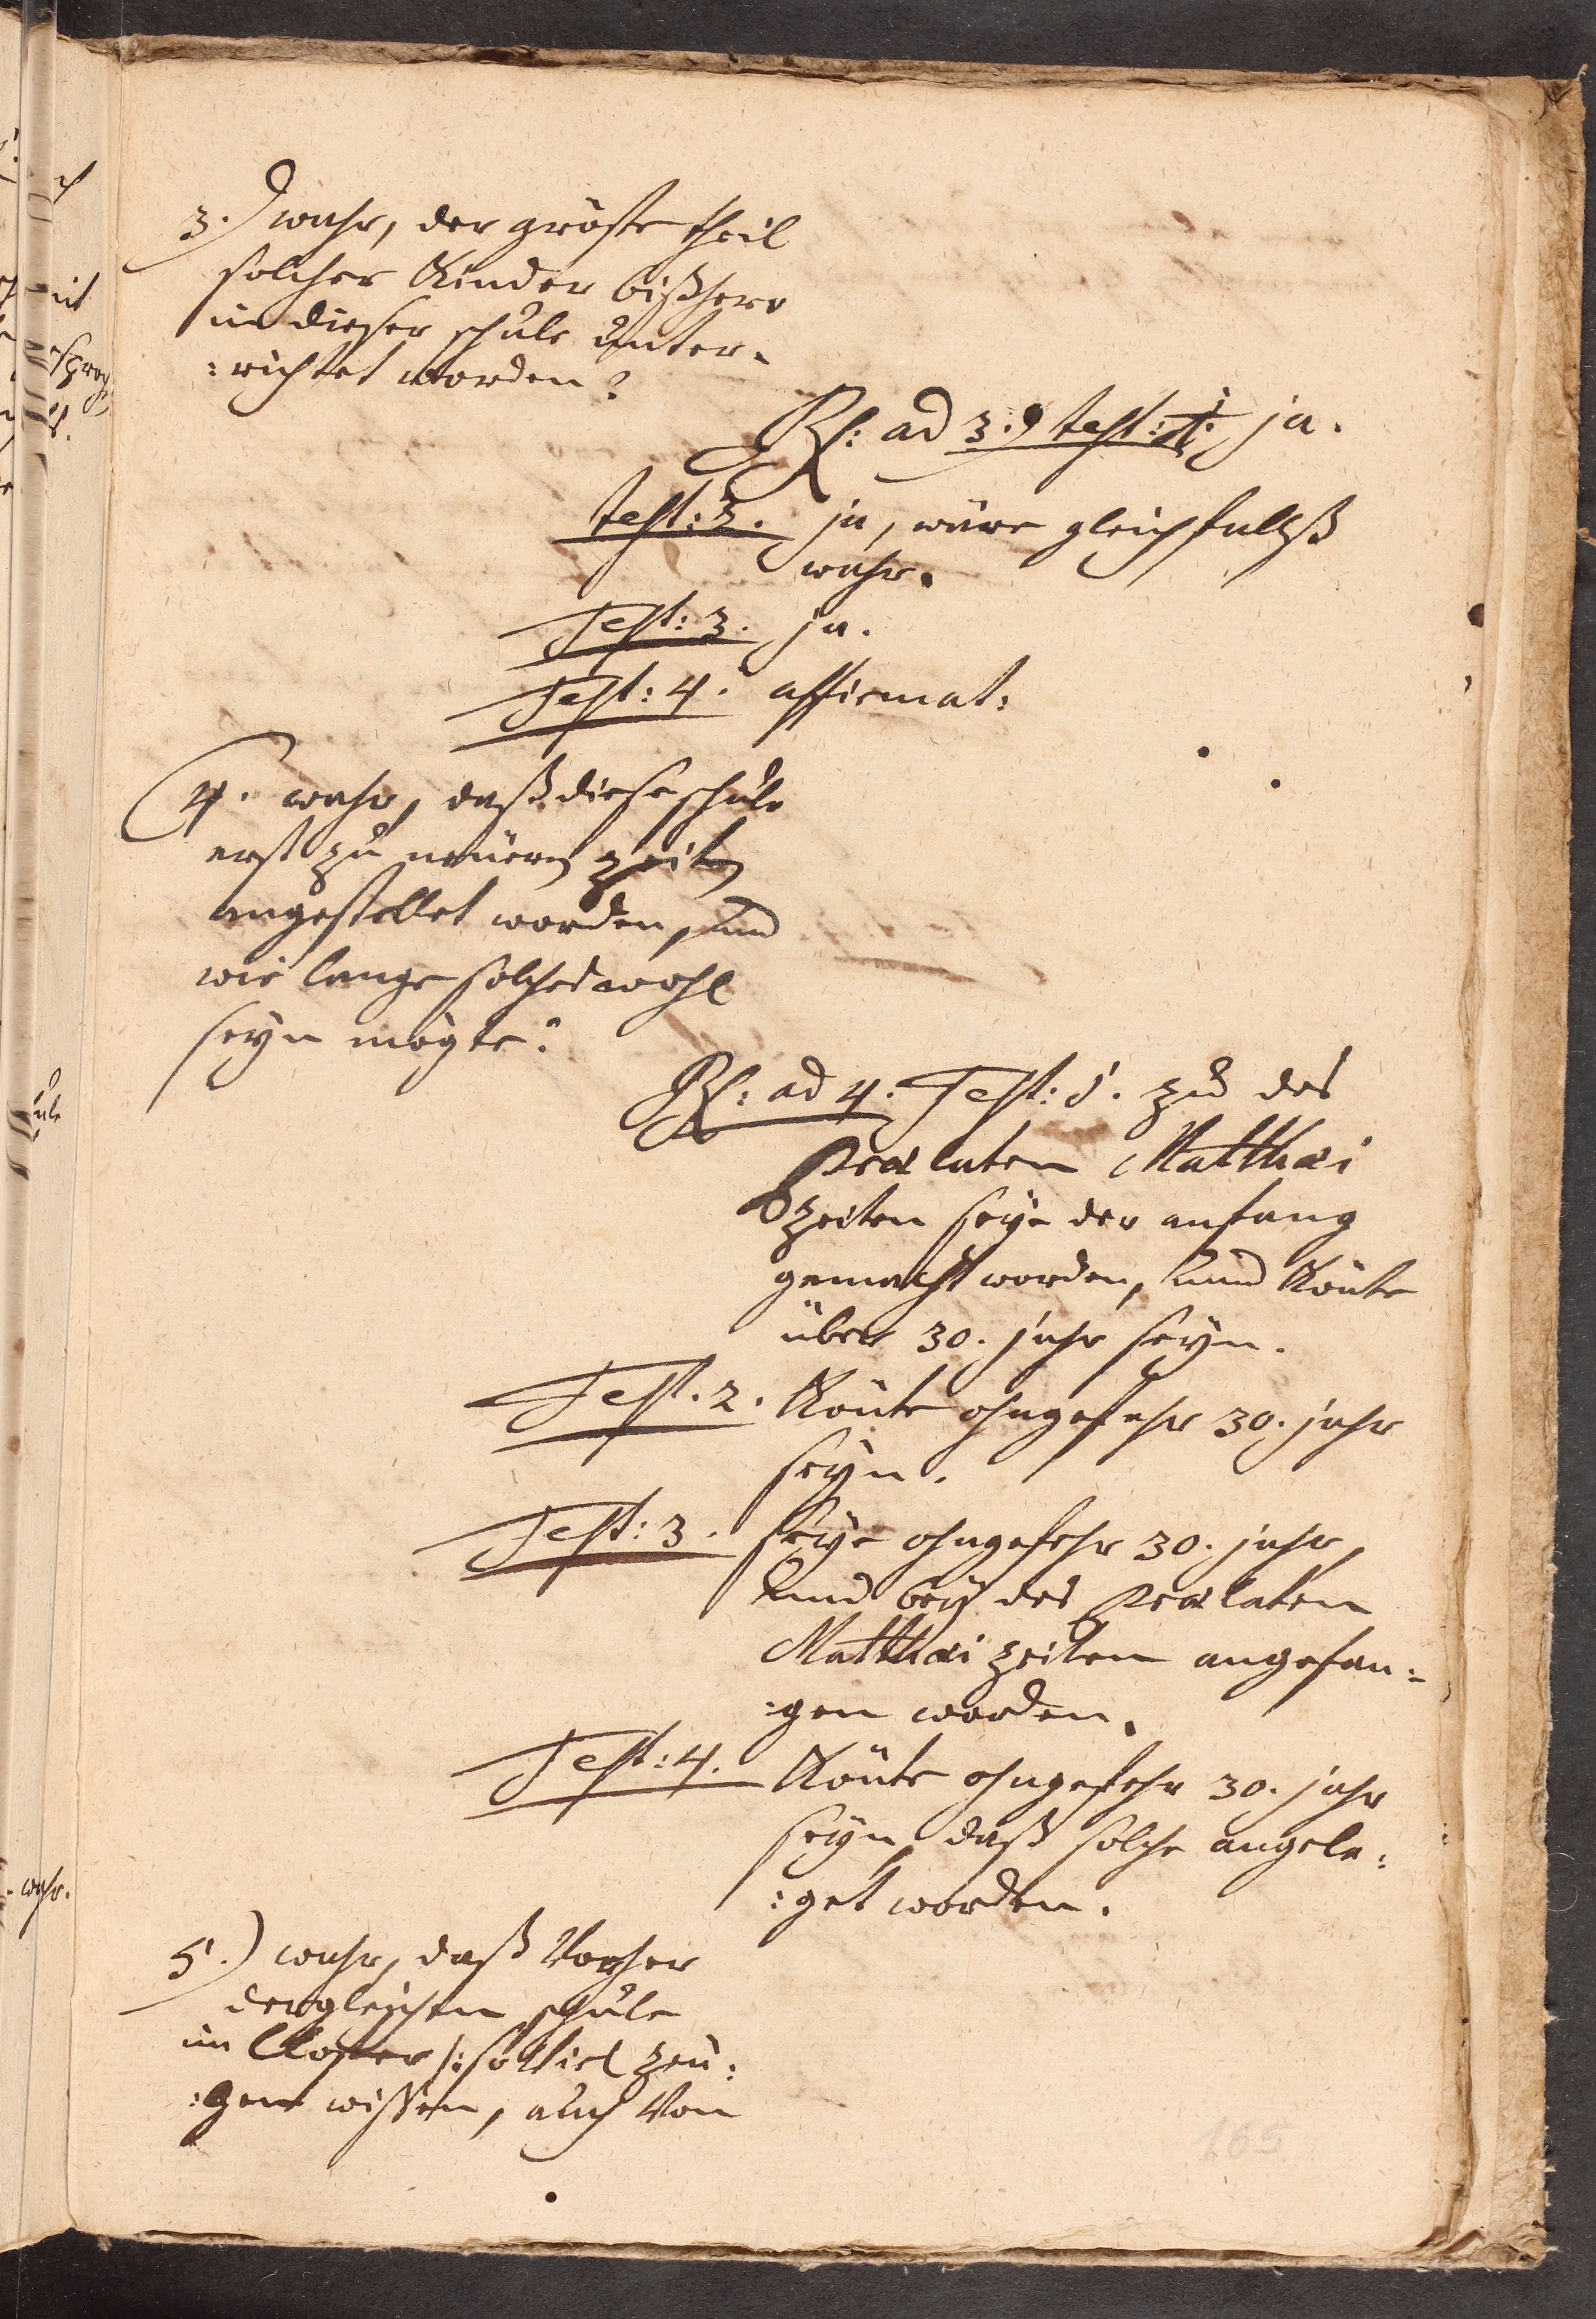 3.) wahr, der gröste theil
solcher Kinder bißhero
in dieser schule unter-
:richtet worden?
Rs: ad 3.) test: 1. ja.
test: 2. ja, wäre gleichfallß
wahr.
Test: 3. ja.
Test: 4. affirmat:
4. wahr, daß diese schule
erst zu neüern zeiten
angestellet worden, und
wie lange solches wohl
seyn mögte?
Rs: ad 4. Test: 1. zu des
Prælaten Matthæi
zeiten seye der anfang
gemacht worden, und Könte
über 30. jahr seyn.
Test. 2. Könte ohngefehr 30. jahr
seyn.
Test: 3. seye ohngefehr 30. jahr,
und bey des Prælaten
Matthæi zeiten angefan:
:gen worden.
Test: 4. Könte ohngefehr 30. jahr
seyn, daß solche angele:
:get worden.
5.) wahr, daß Vorher
dergleichen schule
im Closter /: so Viel zeü:
:gen wissen, auch Von
165